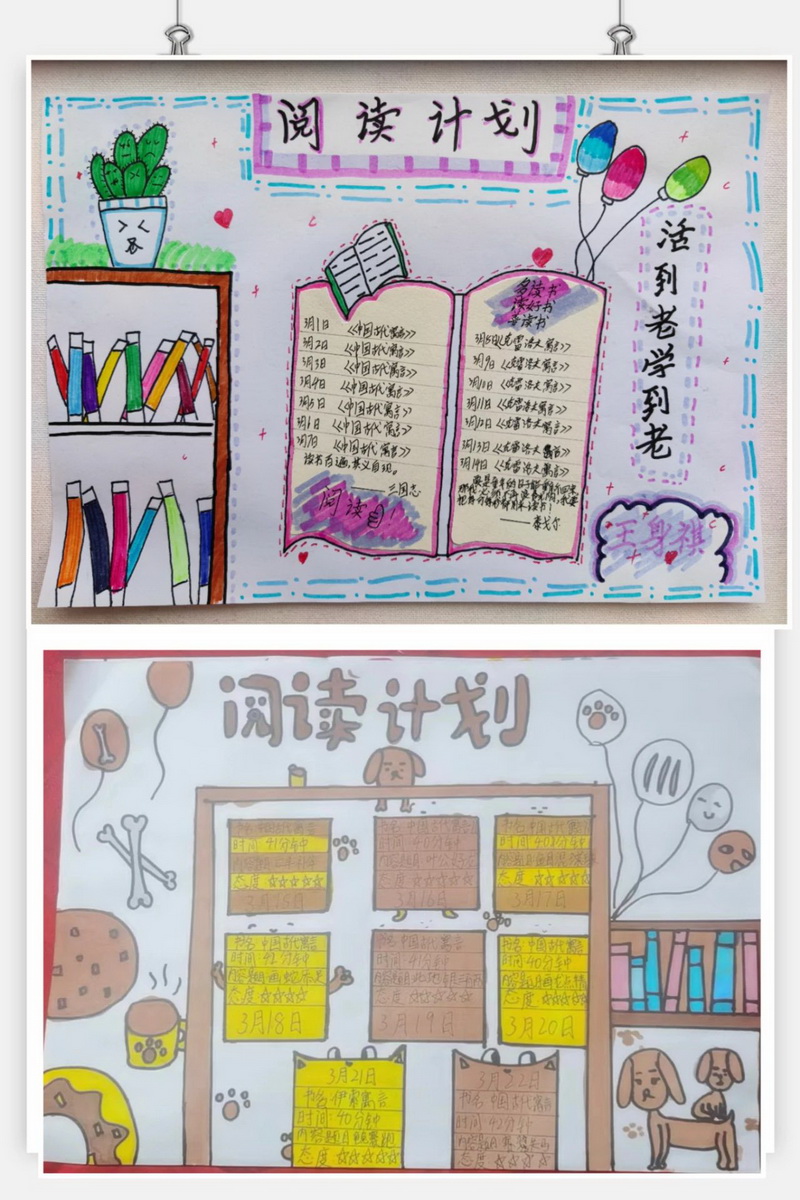 阅读计划
3月1日 《中国古代寓言》
3月2日 《中国古代寓言》
3月3日 《中国古代寓言》
3月4日 《中国古代寓言》
3月5日 《中国古代寓言》
3月6日 《中国古代寓言》
3月7日 《中国古代寓言》
读书百遍，其义自现。
——三国志
阅读目!
多读书
读好书
善读书
3月8日《克雷洛夫寓言》
3月9日 《克雷洛夫寓言》
3月10日 《克雷洛夫寓言》
3月11日 《克雷洛夫寓言》
3月12日 《克雷洛夫寓言》
3月13日 《克雷洛夫寓言》
3月14日 《克雷洛夫寓言》
——泰戈尔
活到老学到老
王身祺
阅读计划
书名 中国古代寓言
时间 41分钟
态度 ☆☆☆☆☆
3月15日
书名 中国古代寓言
时间 40分钟
态度 ☆☆☆☆☆
3月16日
书名 中国古代寓言
时间
态度 ☆☆☆☆☆
3月17日
书名 中国古代寓言
时间 42分钟
内容题目 画蛇添足
态度 ☆☆☆☆
3月18日
书名 中国古代寓言
时间 40分钟
态度 ☆☆☆☆☆
3月19日
书名 中国古代寓言
时间 40分钟
内容题目 画龙点睛
态度 ☆☆☆☆☆
3月20日
3月21日
书名 伊索寓言
时间 40分钟
内容题目 龟兔赛跑
态度 ☆☆☆☆☆
3月22日
书名 中国古代寓言
时间 42分钟
态度 ☆☆☆☆☆